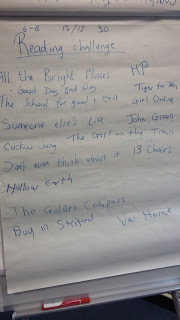 6-8 13/15 30
Reading challenge
All the Bright Places HP
- Good Dog, Bad Dog Tiger for
The School for good + Evil Girl Online
Someone else's Life John Green
Cuckoo Song The Girl on the Train
Don't even think about it 13 Chairs
Hollow Earth
The Golden Compass
Boy in Striped War Horse